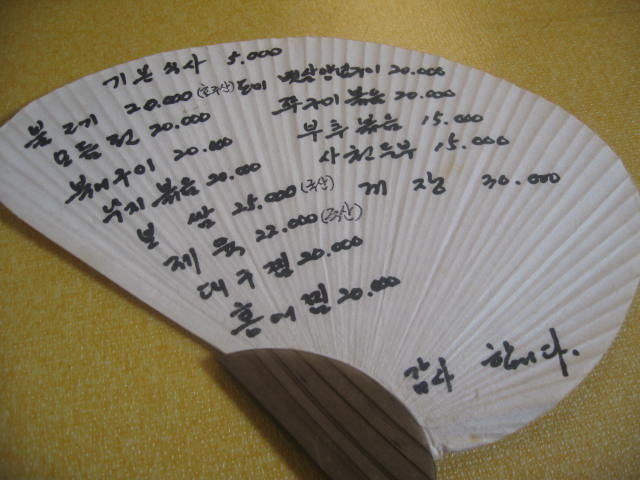 기본 식사 5.000
불고기 20.000 (호주산)
모듬전 20.000
북어구이 20.000
낙지볶음 20.000
보쌈 25.000 (국산)
제육 22.000 (국산)
대구찜 20.000
홍어찜 20.000
도미 뱃살양념구이 20.000
쭈구미 볶음 20.000
부추볶음 15.000
사천두부 15.000
게장 30.000
감사 합니다.